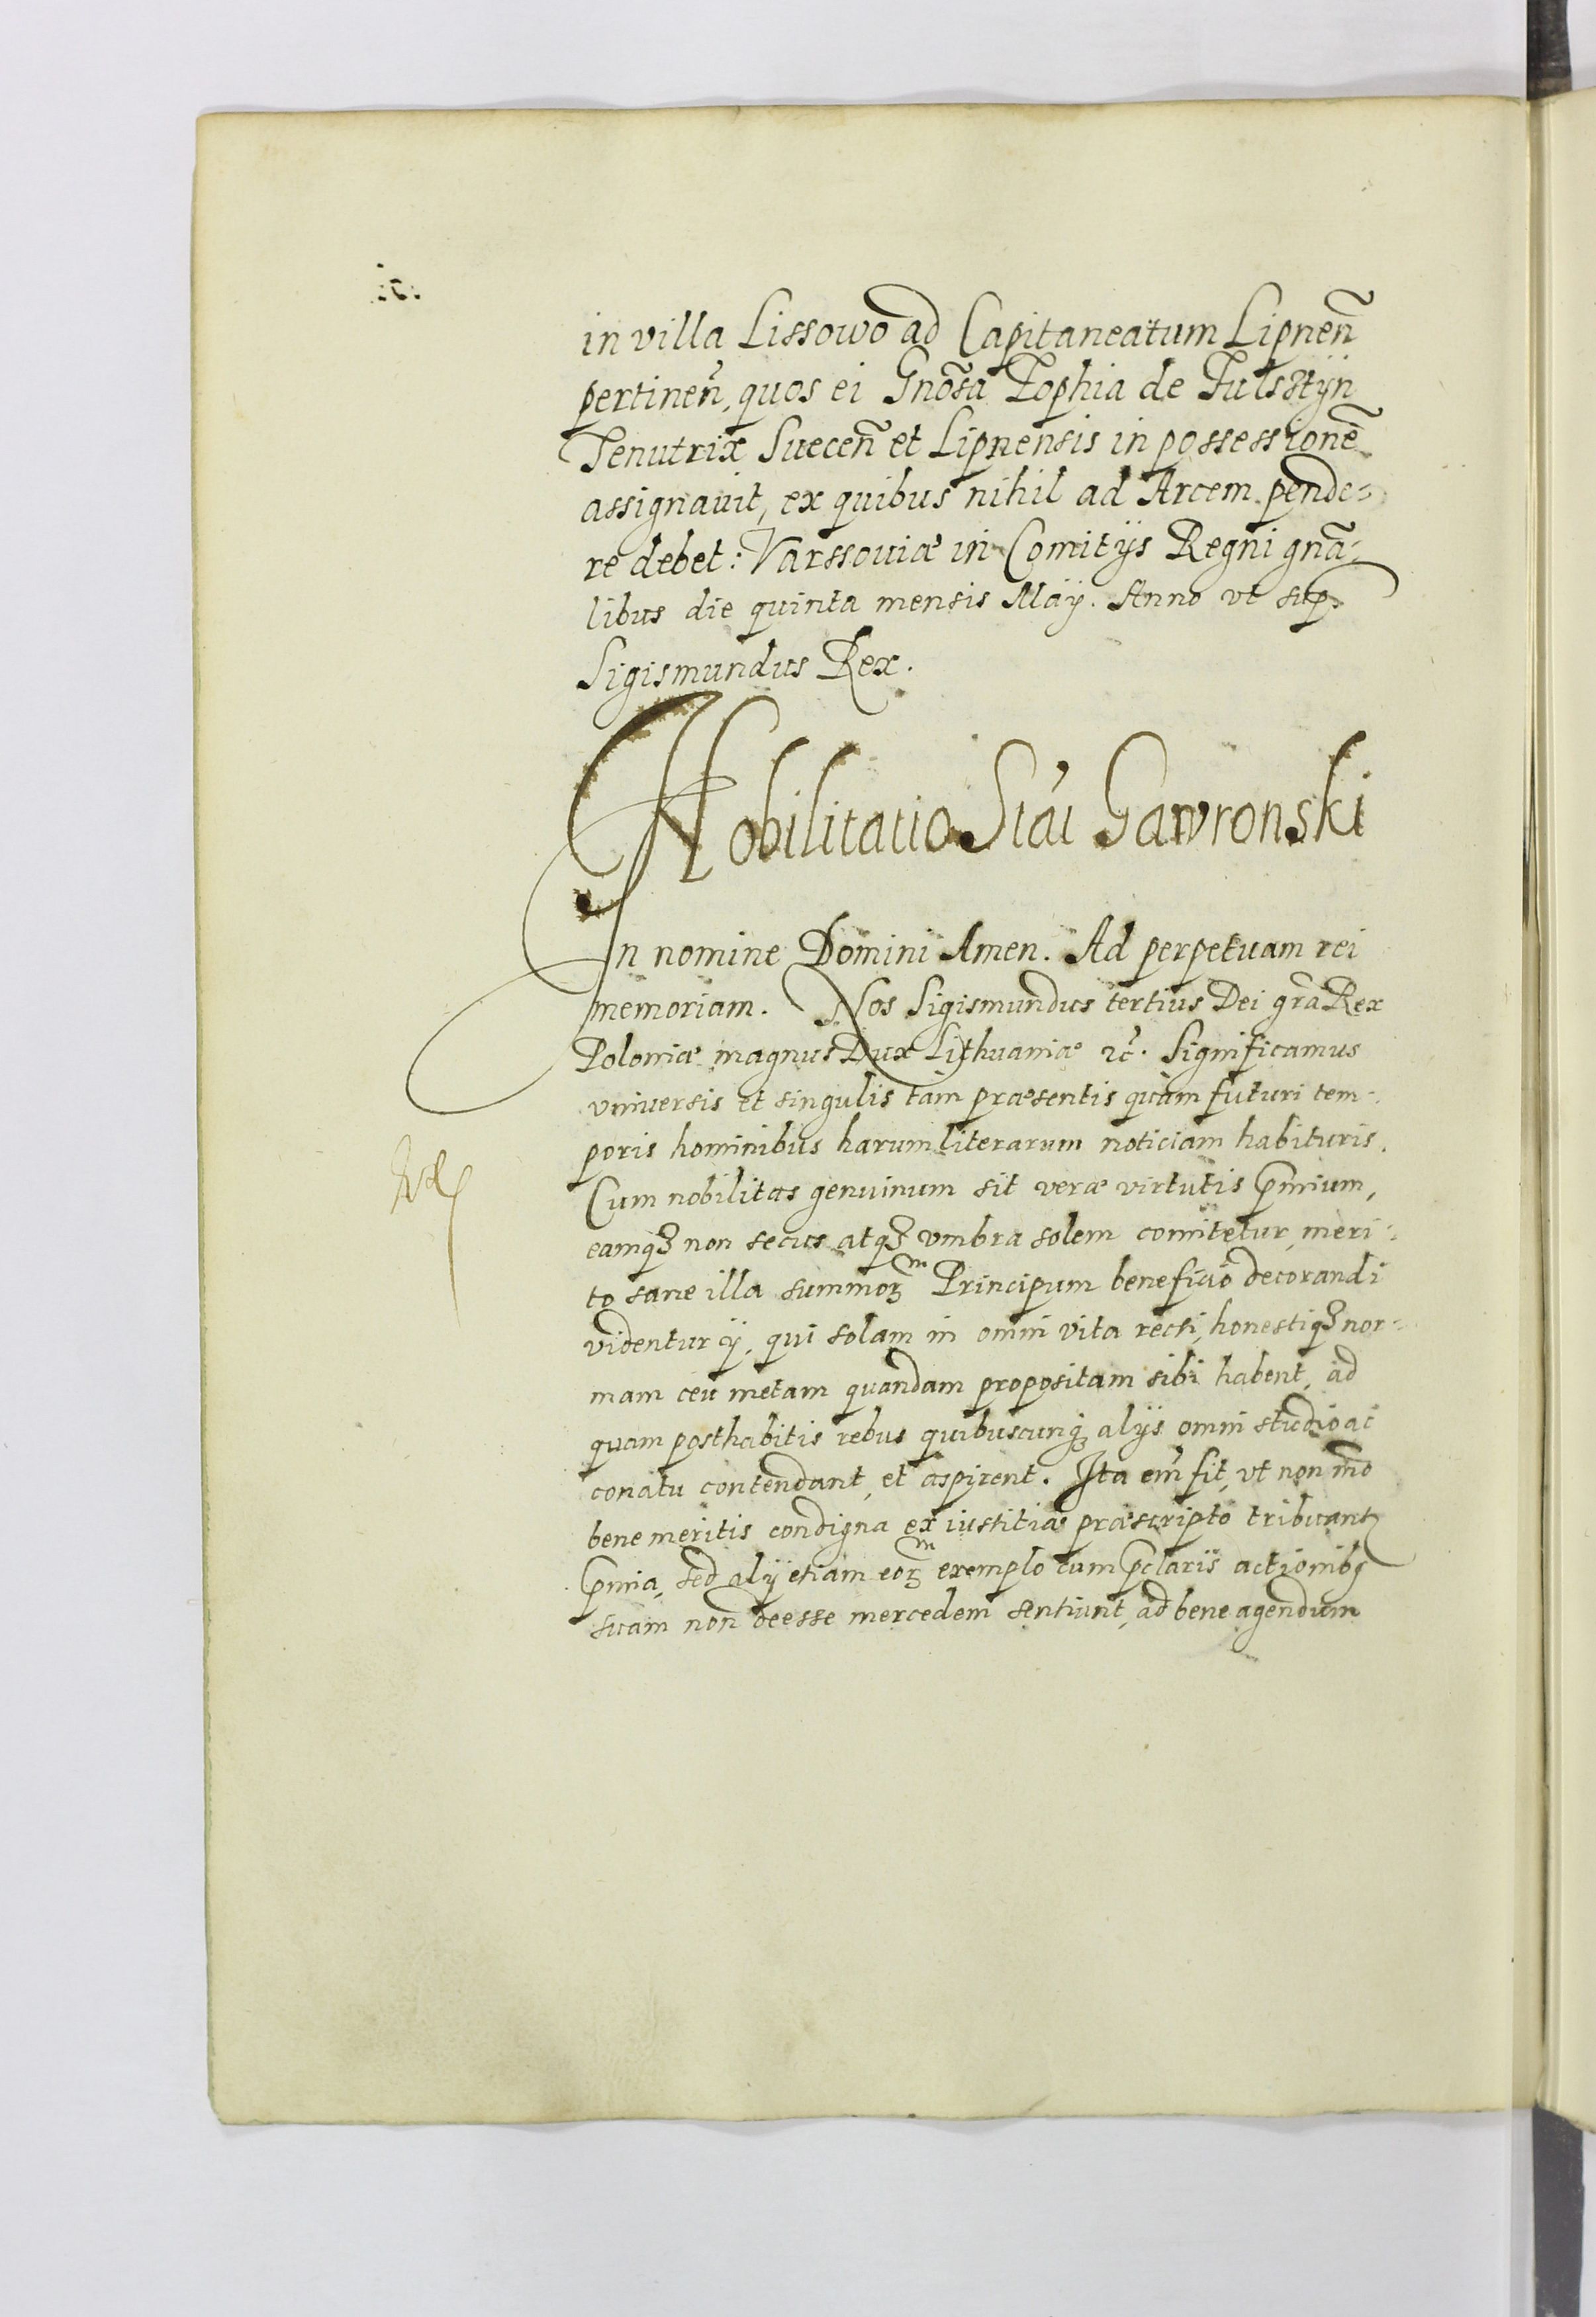 in villa Lissowo ad Capitaneatum Lipnen̄
pertinen̄, quos ei Gnōsa Zophia de Fulsstÿn
Tenutrix Suecen̄ et Lipnensis in possessionē
assignauit, ex quibus nihil ad Arcem pende-
re debet: Varssouiæ in Comitÿs Regni gnā-
libus die quinta mensis Maÿ. Anno vt sup.
Sigismundus Rex.
Nobilitatio Stāi Gawronski
In nomine Domini Amen. Ad perpetuam rei
memoriam. Nos Sigismundus tertius Dei grā Rex
Poloniæ magnus Dux Lithuaniæ ꝛc̄. Significamus
vniuersis et singulis tam præsentis quàm futuri tem-
poris hominibus harum literarum noticiam habituris.
Cum nobilitas genuinum sit veræ virtutis p̄mium,
eamqꝫ non secus atqꝫ vmbra solem comitetur, meri-
to sane illa summoꝝᵐ Principum beneficio decorandi
videntur ÿ, qui solam in omni vita recti, honestiqꝫ nor-
mam ceu metam quandam propositam sibi habent, ad
quam posthabitis rebus quibuscunqꝫ alÿs omni studio ac
conatu contendant, et aspirent. Ita em̄ fit, vt non m̄o
bene meritis condigna ex iustitiæ præscripto tribuantꝫ
p̄mia, sed alÿ etiam eoꝝᵐ exemplo cum p̄claris actionibꝫ
suam non deesse mercedem sentiunt, ad bene agendum